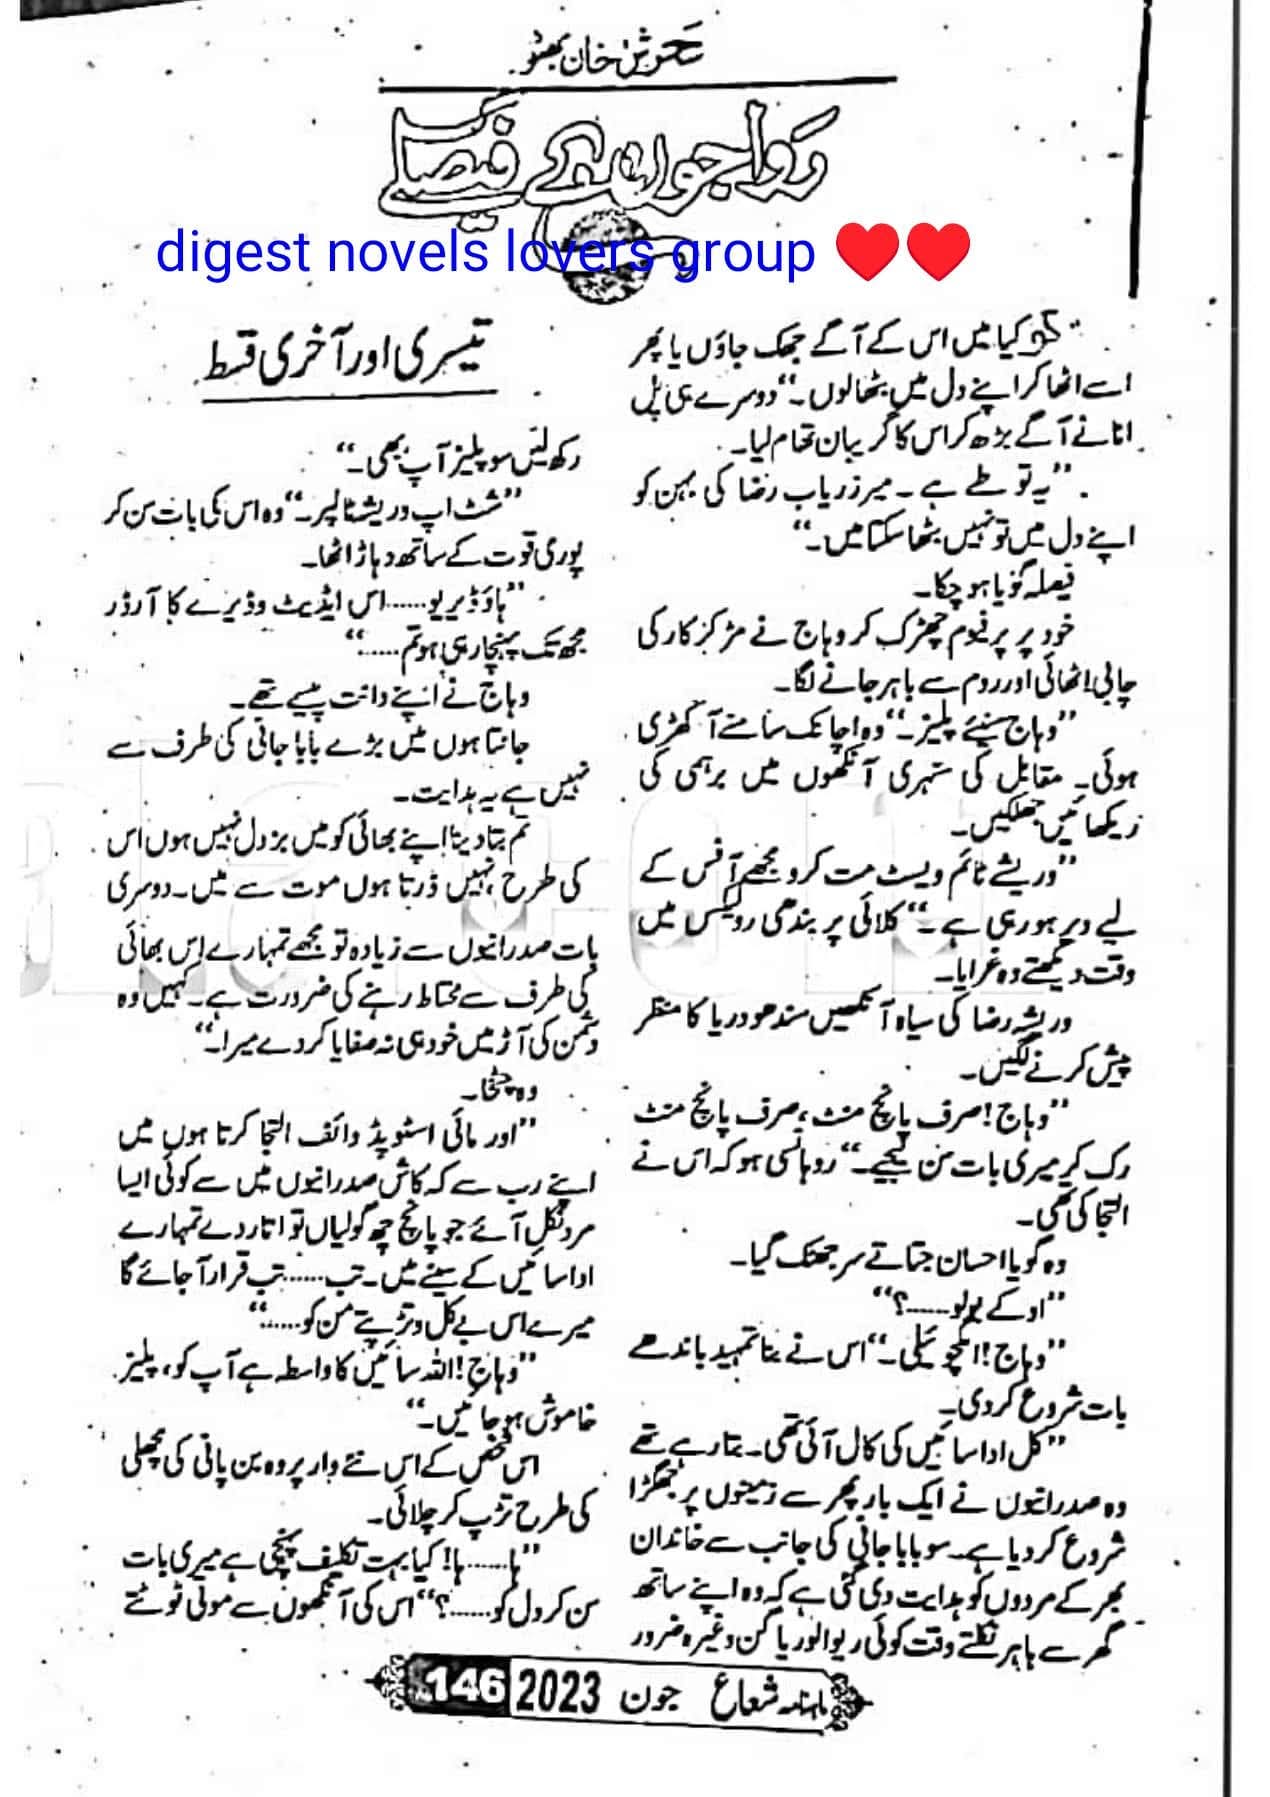 سحرش خان بھٹو
رواجوں کے فیصلے
digest novels lovers group ❤❤
تیسری اور آخری قسط
کیا میں اس کے آگے جھک جاؤں یا پھر
اسے اٹھا کر اپنے دل میں بٹھا لوں۔“ دوسرے ہی پل
انا نے آگے بڑھ کر اس کا گریبان تھام لیا۔
”یہ تو طے ہے۔ میرزریاب رضا کی بہن کو
اپنے دل میں تو نہیں بٹھا سکتا میں۔“
فیصلہ گویا ہو چکا۔
خود پر پرفیوم چھڑک کر وہاج نے مڑ کر کار کی
چابی اٹھائی اور روم سے باہر جانے لگا۔
”وہاج سنیے پلیز۔“ وہ اچانک سامنے آ کھڑی
ہوئی۔ مقابل کی سنہری آنکھوں میں برہمی کی
ریکھائیں جھلکیں۔
”وریشے ٹائم ویسٹ مت کرو مجھے آفس کے
لیے دیر ہو رہی ہے۔“ کلائی پر بندھی رولیکس میں
وقت دیکھتے وہ غرایا۔
وریشہ رضا کی سیاہ آنکھیں سندھو دریا کا منظر
پیش کرنے لگیں۔
”وہاج! صرف پانچ منٹ، صرف پانچ منٹ
رک کر میری بات سن لیجیے۔“ روہانسی ہو کہ اس نے
التجا کی تھی۔
وہ گویا احسان جتاتے سر جھٹک گیا۔
”اوکے بولو......؟“
”وہاج! ایکچوئلی۔“ اس نے بنا تمہید باندھے
بات شروع کر دی۔
”کل ادا سائیں کی کال آئی تھی۔ بتا رہے تھے
وہ صدرانیوں نے ایک بار پھر سے زمینوں پر جھگڑا
شروع کر دیا ہے۔ سو بابا جانی کی جانب سے خاندان
بھر کے مردوں کو ہدایت دی گئی ہے کہ وہ اپنے ساتھ
گھر سے باہر نکلتے وقت کوئی ریوالور یا گن وغیرہ ضرور
رکھ لیں سو پلیز آپ بھی۔“
”شٹ اپ وریشے ٹالپر۔“ وہ اس کی بات سن کر
پوری قوت کے ساتھ دہاڑ اٹھا۔
”ہاؤ ڈیر یو...... اس ایڈیٹ وڈیرے کا آرڈر
مجھ تک پہنچا رہی ہو تم......“
وہاج نے اپنے دانت پیسے تھے۔
جانتا ہوں میں بڑے بابا جانی کی طرف سے
نہیں ہے یہ ہدایت۔
تم بتا دینا اپنے بھائی کو میں بزدل نہیں ہوں اس
کی طرح، نہیں ڈرتا ہوں موت سے میں۔ دوسری
بات صدرانیوں سے زیادہ تو مجھے تمہارے اس بھائی
کی طرف سے محتاط رہنے کی ضرورت ہے۔ کہیں وہ
دشمن کی آڑ میں خود ہی نہ صفایا کر دے میرا۔“
وہ چٹخا۔
”اور مائی اسٹوپڈ وائف التجا کرتا ہوں میں
اپنے رب سے کہ کاش صدرانیوں میں سے کوئی ایسا
مرد نکل آئے جو پانچ چھ گولیاں تو اتار دے تمہارے
ادا سائیں کے سینے میں۔ تب...... تب قرار آ جائے گا
میرے اس بے کل و تڑپتے من کو......“
”وہاج! اللہ سائیں کا واسطہ ہے آپ کو، پلیز
خاموش ہو جائیں۔“
اس شخص کے اس نئے وار پر وہ بن پانی کی مچھلی
کی طرح تڑپ کر چلائی۔
”ہا...... ہا! کیا بہت تکلیف پہنچی ہے میری بات
سن کر دل کو......؟“ اس کی آنکھوں سے موتی ٹوٹتے
ماہنامہ شعاع جون 2023 146